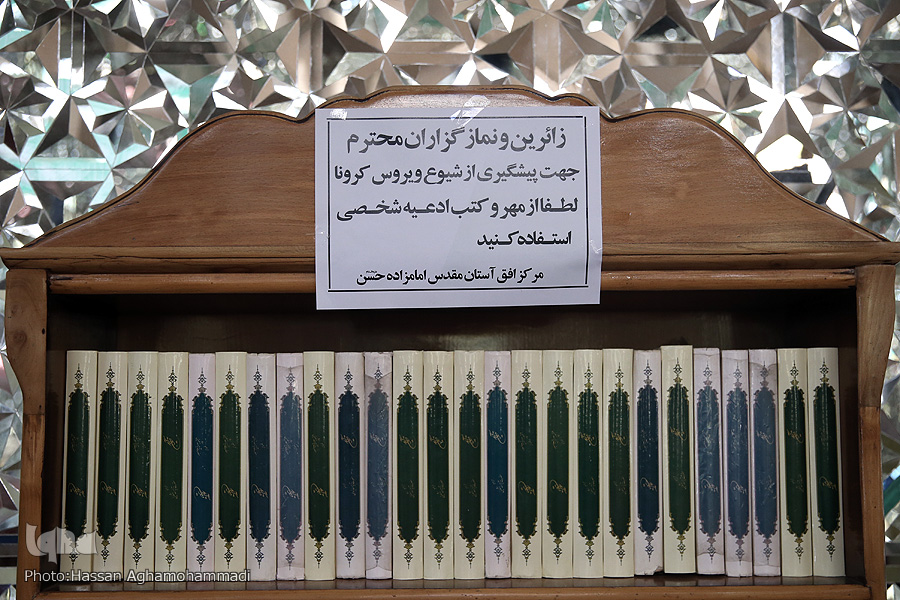 زائرین و نمازگزاران محترم
جهت پیشگیری از شیوع ویروس کرونا
لطفا از مهر و کتب ادعیه شخصی
استفاده کنید
مرکز افق آستان مقدس امامزاده حسن
iqna
Photo:Hassan Aghamohammadi